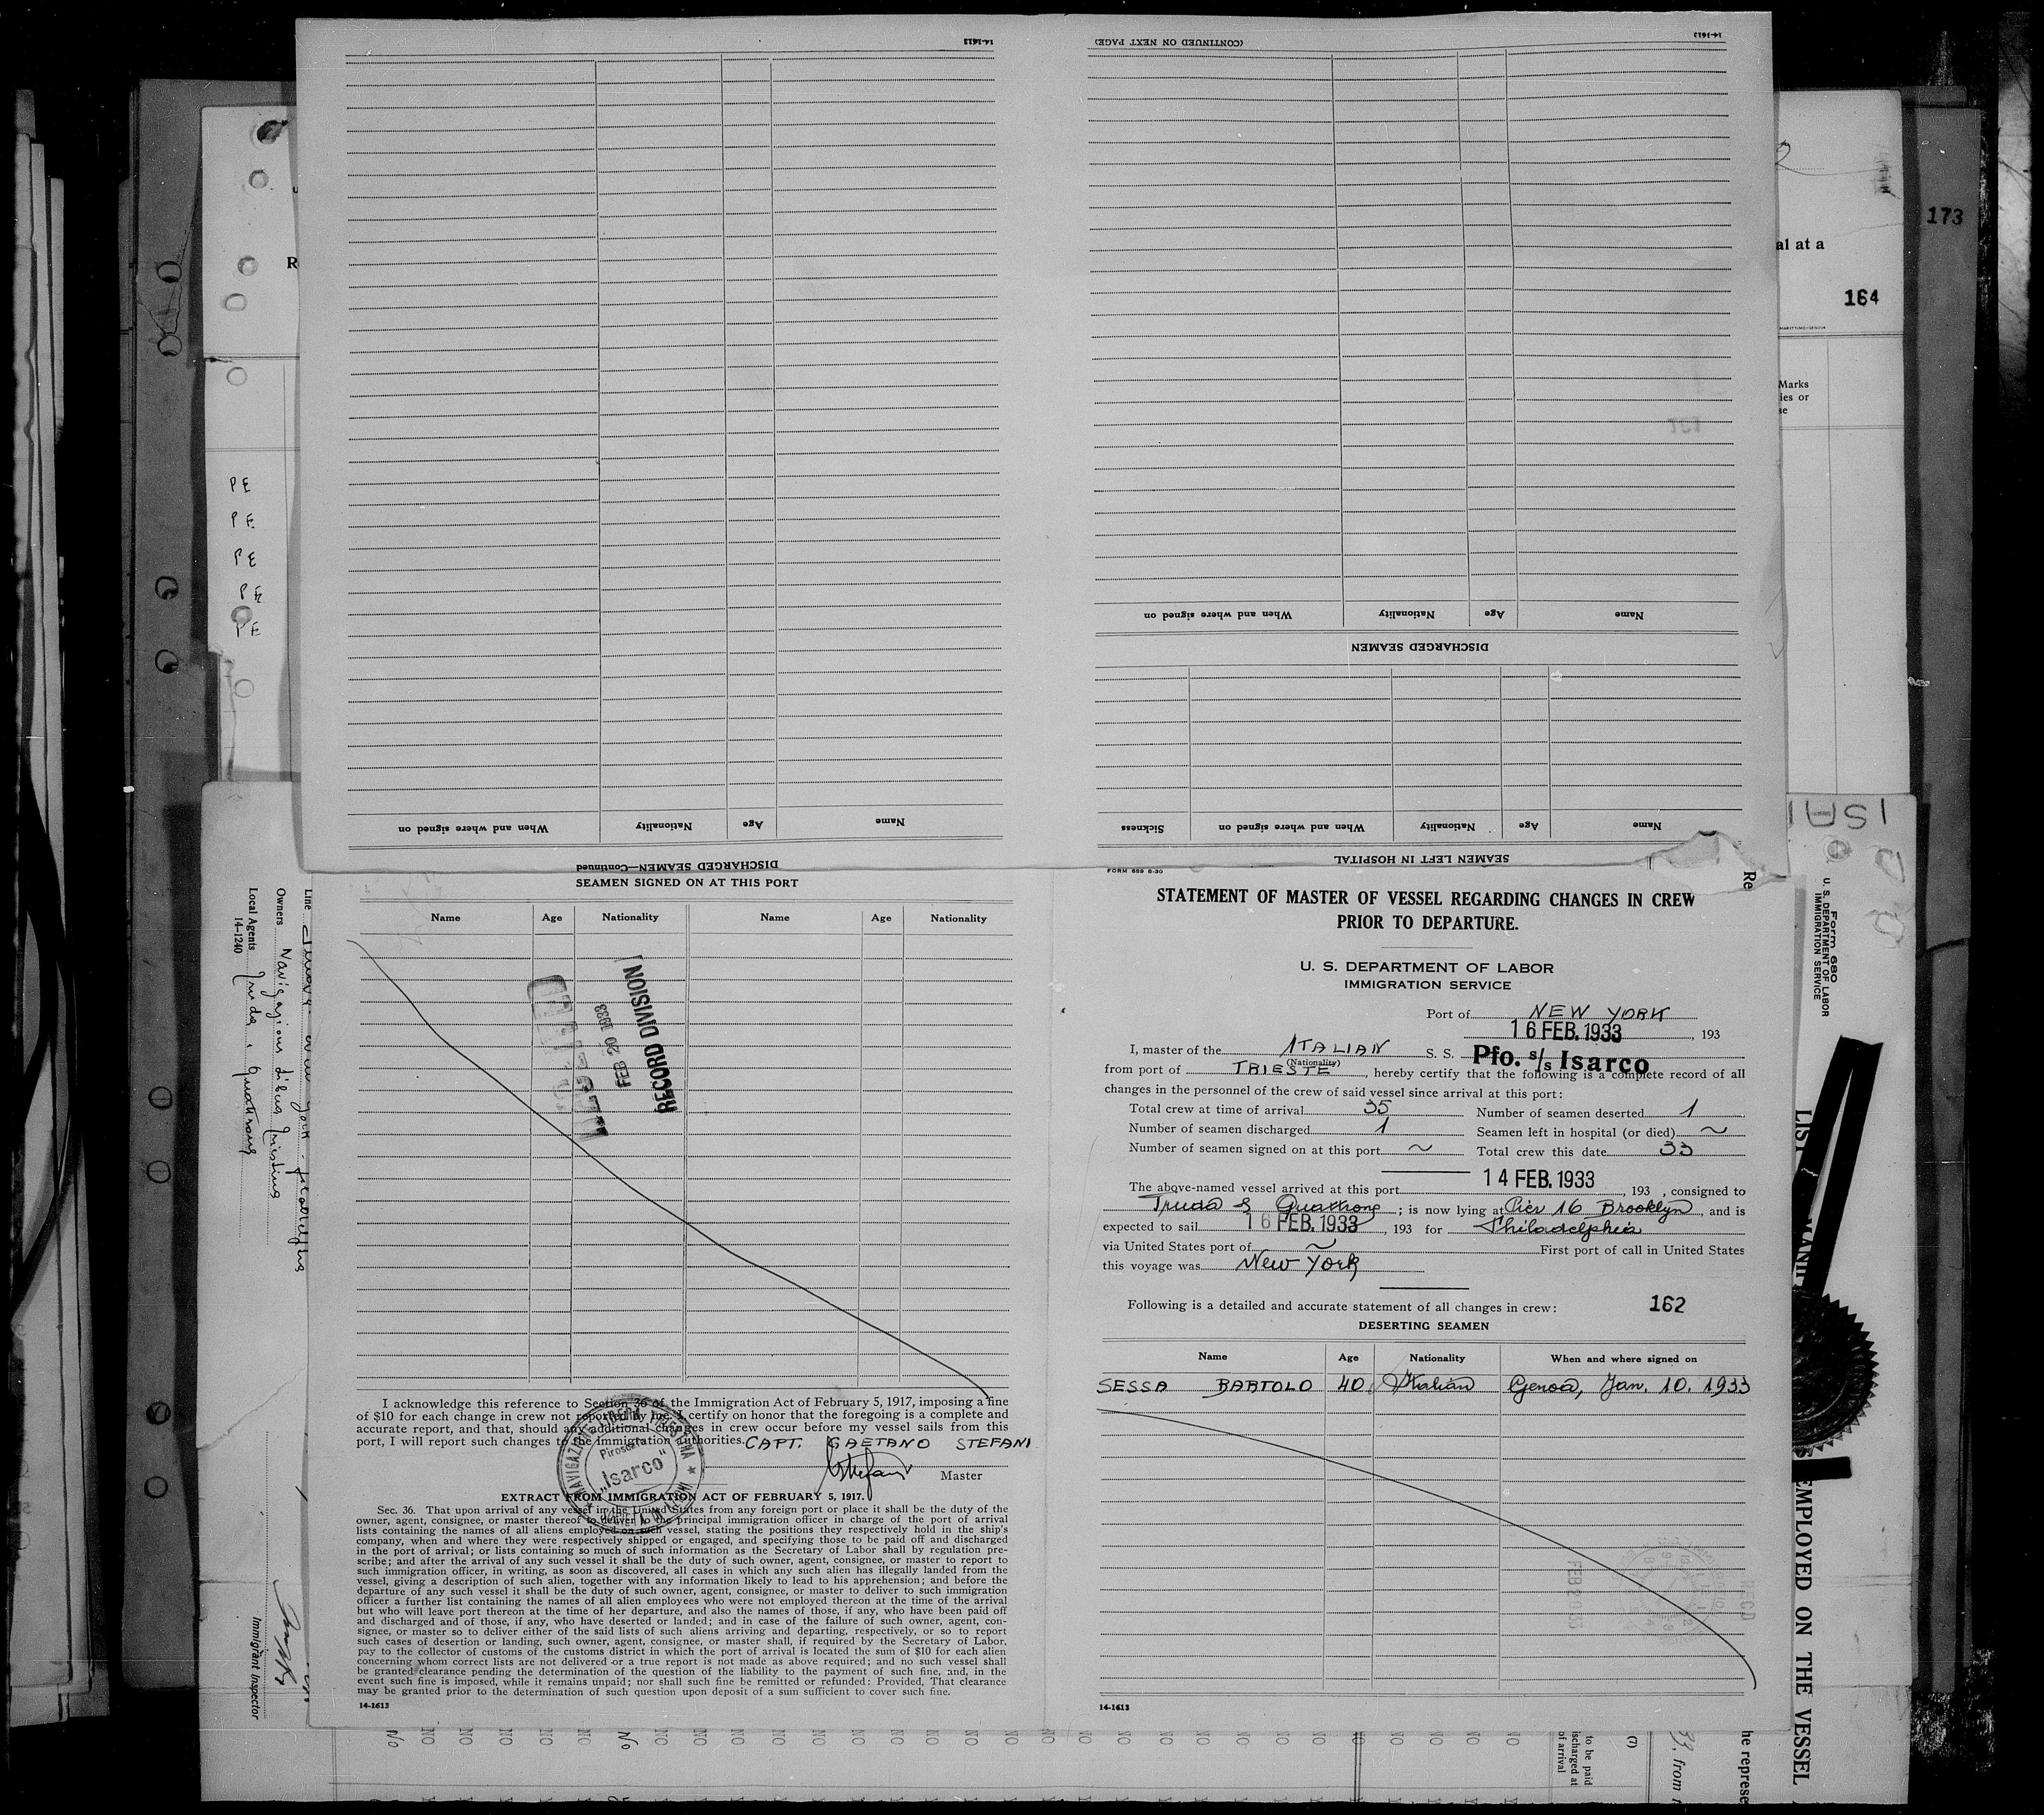 14-1613
(CONTINUED ON NEXT PAGE)
14-1613
173
al at a
164
R
Marks
ies or
se
PE
PE
PE
PE
PE
Name
Age
Nationality
When and where signed on
DISCHARGED SEAMEN
Name
Age
Nationality
When and where signed on
Name
Age
Nationality
When and where signed on
Sickness
DISCHARGED SEAMEN—Continued
SEAMEN LEFT IN HOSPITAL
SEAMEN SIGNED ON AT THIS PORT
Name Age Nationality Name Age Nationality
RECORD DIVISION
FEB 20 1933
I acknowledge this reference to Section 36 of the Immigration Act of February 5, 1917, imposing a fine
of $10 for each change in crew not reported by me. I certify on honor that the foregoing is a complete and
accurate report, and that, should any additional changes in crew occur before my vessel sails from this
port, I will report such changes to the immigration authorities.
CAPT. GAETANO STEFANI
Master
Piroscafo
"Isarco"
EXTRACT FROM IMMIGRATION ACT OF FEBRUARY 5, 1917.
Sec. 36. That upon arrival of any vessel in the United States from any foreign port or place it shall be the duty of the
owner, agent, consignee, or master thereof to deliver to the principal immigration officer in charge of the port of arrival
lists containing the names of all aliens employed on such vessel, stating the positions they respectively hold in the ship's
company, when and where they were respectively shipped or engaged, and specifying those to be paid off and discharged
in the port of arrival; or lists containing so much of such information as the Secretary of Labor shall by regulation pre-
scribe; and after the arrival of any such vessel it shall be the duty of such owner, agent, consignee, or master to report to
such immigration officer, in writing, as soon as discovered, all cases in which any such alien has illegally landed from the
vessel, giving a description of such alien, together with any information likely to lead to his apprehension; and before the
departure of any such vessel it shall be the duty of such owner, agent, consignee, or master to deliver to such immigration
officer a further list containing the names of all alien employees who were not employed thereon at the time of the arrival
but who will leave port thereon at the time of her departure, and also the names of those, if any, who have been paid off
and discharged and of those, if any, who have deserted or landed; and in case of the failure of such owner, agent, con-
signee, or master so to deliver either of the said lists of such aliens arriving and departing, respectively, or so to report
such cases of desertion or landing, such owner, agent, consignee, or master shall, if required by the Secretary of Labor,
pay to the collector of customs of the customs district in which the port of arrival is located the sum of $10 for each alien
concerning whom correct lists are not delivered or a true report is not made as above required; and no such vessel shall
be granted clearance pending the determination of the question of the liability to the payment of such fine, and, in the
event such fine is imposed, while it remains unpaid; nor shall such fine be remitted or refunded: Provided, That clearance
may be granted prior to the determination of such question upon deposit of a sum sufficient to cover such fine.
14-1613
FORM 689 6-30
STATEMENT OF MASTER OF VESSEL REGARDING CHANGES IN CREW
PRIOR TO DEPARTURE.
U. S. DEPARTMENT OF LABOR
IMMIGRATION SERVICE
Port of NEW YORK
16 FEB. 1933, 193
I, master of the ITALIAN S. S. Pfo. s/s Isarco
(Nationality)
from port of TRIESTE, hereby certify that the following is a complete record of all
changes in the personnel of the crew of said vessel since arrival at this port:
Total crew at time of arrival 35 Number of seamen deserted 1
Number of seamen discharged 1 Seamen left in hospital (or died) ~
Number of seamen signed on at this port ~ Total crew this date 33
The above-named vessel arrived at this port 14 FEB. 1933, 193 , consigned to
Truda & Quattrone; is now lying at Pier 16 Brooklyn, and is
expected to sail 16 FEB. 1933, 193 for Philadelphia
via United States port of ~ First port of call in United States
this voyage was New York
Following is a detailed and accurate statement of all changes in crew: 162
DESERTING SEAMEN
Name Age Nationality When and where signed on
SESSA BARTOLO 40 Italian Genoa, Jan. 10. 1933
14-1613
Line
Owners Navigazione Libera Triestina
Local Agents Truda & Quattrone
14-1240
Immigrant Inspector
Re
Form 680
U. S. DEPARTMENT OF LABOR
IMMIGRATION SERVICE
LIST
EMPLOYED ON THE VESSEL
he represe
33, from
(7)
to be paid
ischarged at
of arrival